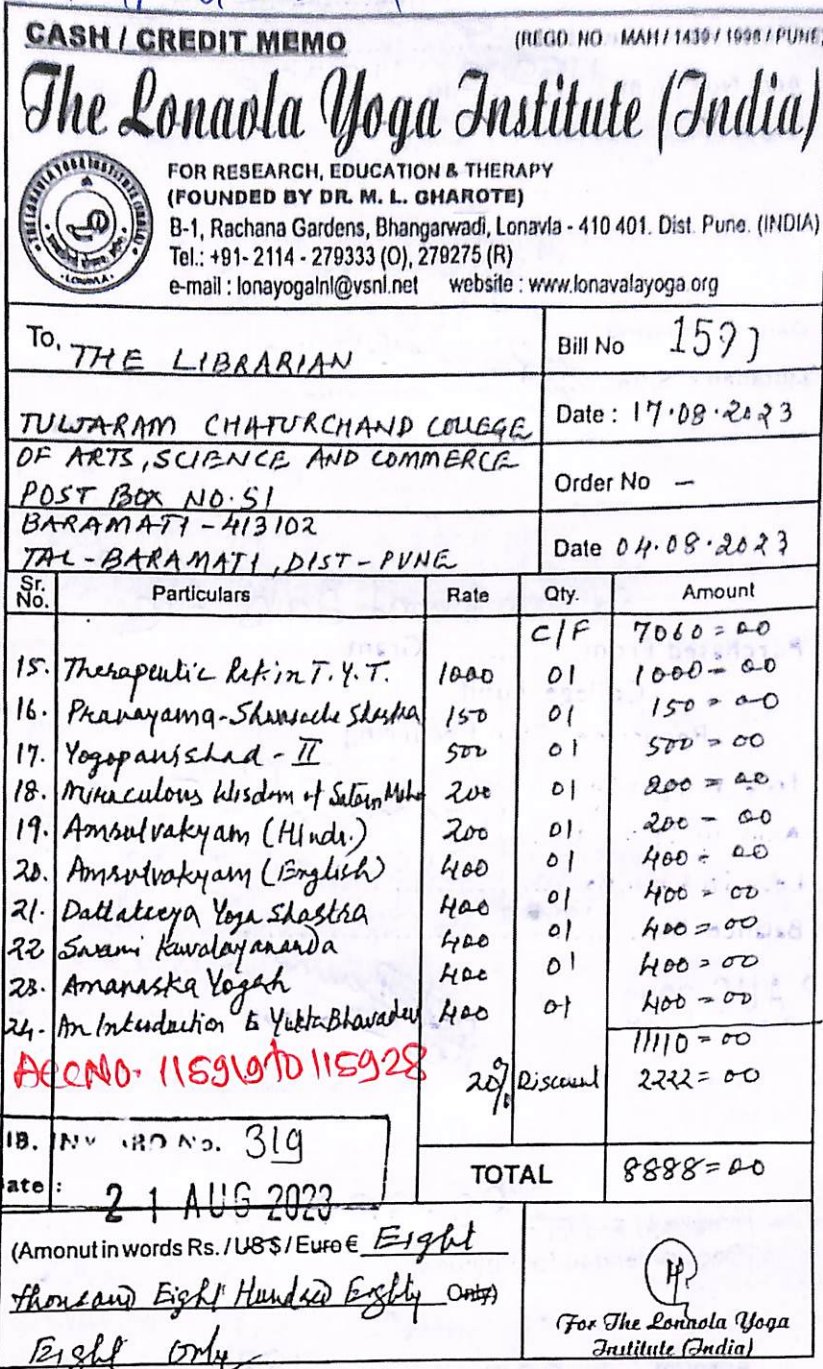 CASH / CREDIT MEMO (REGD. NO. MAH / 1439 / 1998 / PUNE)
The Lonaola Yoga Institute (India)
FOR RESEARCH, EDUCATION & THERAPY
(FOUNDED BY DR. M. L. GHAROTE)
B-1, Rachana Gardens, Bhangarwadi, Lonavla - 410 401. Dist. Pune. (INDIA)
Tel.: +91- 2114 - 279333 (O), 279275 (R)
e-mail : lonayogalnl@vsnl.net website : www.lonavalayoga.org
To, THE LIBRARIAN
Bill No
TULJARAM CHATURCHAND COLLEGE
Date : 17.08.2023
OF ARTS, SCIENCE AND COMMERCE
POST BOX NO. 51
Order No -
BARAMATI - 413102
TAL - BARAMATI, DIST - PUNE
Date 04.08.2023
Sr. No. Particulars Rate Qty. Amount
C/F 7060=00
15. Therapeutic Ref. in T. Y. T. 1000 01 1000=00
16. Pranayama - Shastra 150 01 150=00
17. Yogopanishad - II 500 01 500=00
18. Miraculous Wisdom of 200 01 200=00
19. Amsulvakyam (Hindi.) 200 01 200=00
20. Amsulvakyam (English) 400 01 400=00
21. Dattateeya Yoga Shastra 400 01 400=00
22 Swami Kuvalayananda 400 01 400=00
23. Amanaska Yogah 400 01 400=00
24. An Introduction to Yukta 400 01 400=00
11110=00
ACCNO. 115919 to 115928
20% Discount 2222=00
INWARD No. 319
TOTAL 8888=00
ate : 21 AUG 2023
(Amonut in words Rs. / US $ / Euro € Eight
thousand Eight Hundred Eighty Only)
Eight Only
(For The Lonaola Yoga
Institute (India)